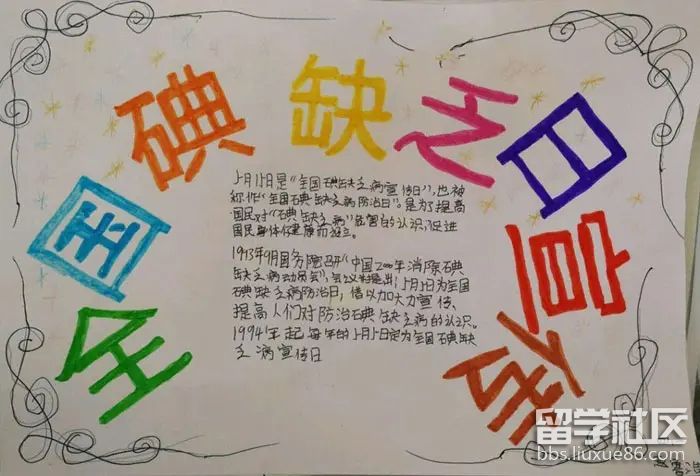 全国碘缺乏日宣传
5月15日是“全国碘缺乏病宣传日”,也被
称作“全国碘缺乏病防治日”。是为了提高
国民对“碘缺乏病”危害的认识,促进
国民身体健康而设立。
1993年9月国务院召开“中国2000年消除碘
缺乏病动员会”,会议提出:5月5日为全国
碘缺乏病防治日,借以加大力宣传、
提高人们对防治碘缺乏病的认识。
1994年起每年的5月5日定为全国碘缺
乏病宣传日
留学社区
bbs.liuxue86.com